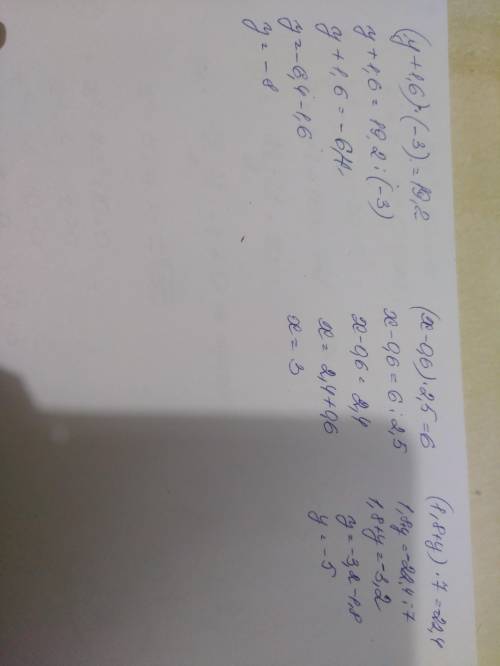 (y+1,6)·(-3)=19,2
y+1,6=19,2:(-3)
y+1,6=-6,4
y=-6,4-1,6
y=-8
(x-0,6)·2,5=6
x-0,6=6:2,5
x-0,6=2,4
x=2,4+0,6
x=3
(1,8+y)·7=-22,4
1,8y=-22,4:7
1,8+y=-3,2
y=-3,2-1,8
y=-5